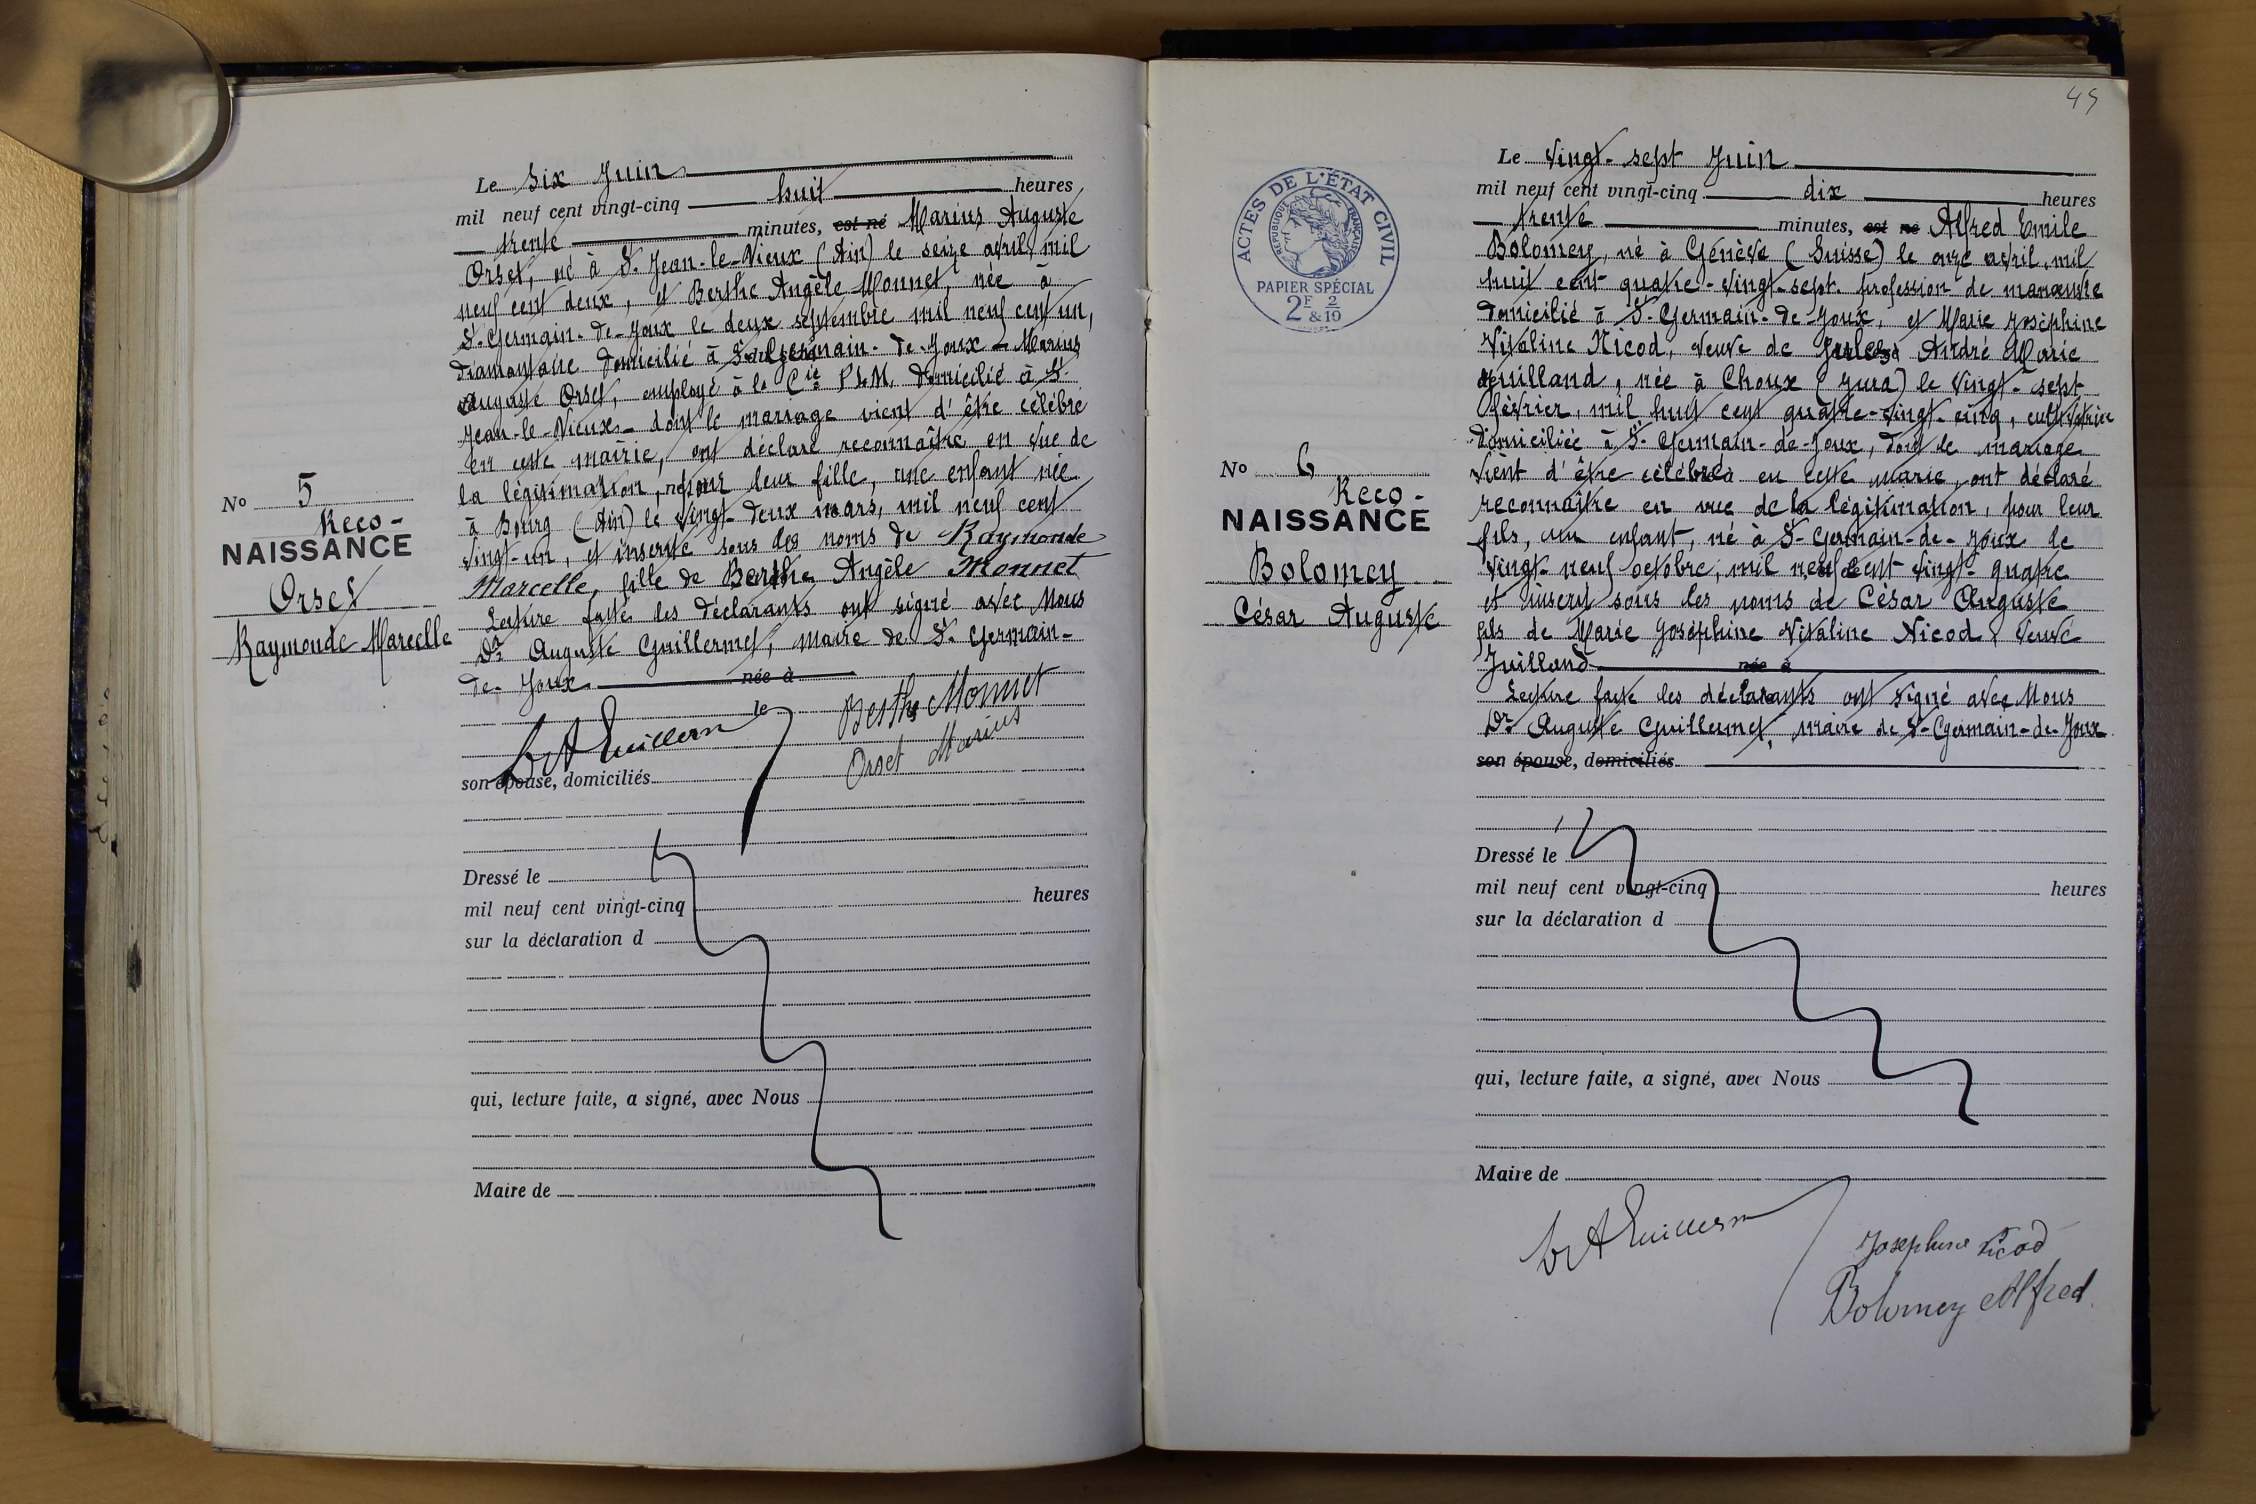 No 5
Reco-
NAISSANCE
Orset
Raymonde Marcelle
Le six Juin
mil neuf cent vingt-cinq huit heures
trente minutes, est né Marius Auguste
Orset, né à St. Jean-le-Vieux (Ain) le seize avril, mil
neuf cent deux, et Berthe Angèle Monnet, née à
St. Germain-de-Joux le deux septembre mil neuf cent un,
diamantaire domicilié à St. Germain-de-Joux - Marius
Auguste Orset, employé à la Cie P.L.M. domicilié à St.
Jean-le-Vieux - dont le mariage vient d'être célébré
en cette mairie, ont déclaré reconnaître en vue de
la légitimation, pour leur fille, une enfant née
à Bourg (Ain) le vingt-deux mars, mil neuf cent
vingt-un, et inscrite sous les noms de Raymonde
Marcelle, fille de Berthe Angèle Monnet
Lecture faite les déclarants ont signé avec Nous
Dr Auguste Guillermet, maire de St. Germain-
de-Joux née à
le
Berthe Monnet
Orset Marius
son épouse, domiciliés
Dressé le
mil neuf cent vingt-cinq heures
sur la déclaration d
qui, lecture faite, a signé, avec Nous
Maire de
49
ACTES DE L'ÉTAT CIVIL
RÉPUBLIQUE FRANÇAISE
PAPIER SPÉCIAL
2F & 2/10
No 6
Reco-
NAISSANCE
Bolomey
César Auguste
Le vingt-sept Juin
mil neuf cent vingt-cinq dix heures
trente minutes, est né Alfred Emile
Bolomey, né à Génève (Suisse) le onze avril, mil
huit cent quatre-vingt-sept. profession de manœuvre
domicilié à St. Germain-de-Joux, et Marie Joséphine
Vitaline Nicod, veuve de André Marie
Juilland, née à Choux (Jura) le vingt-sept
février, mil huit cent quatre-vingt-cinq, cultivatrice
domiciliée à St. Germain-de-Joux, dont le mariage
vient d'être célébré en cette mairie, ont déclaré
reconnaître en vue de la légitimation, pour leur
fils, un enfant, né à St. Germain-de-Joux le
vingt-neuf octobre, mil neuf cent vingt-quatre
et inscrit sous les noms de César Auguste
fils de Marie Joséphine Vitaline Nicod, veuve
Juilland née à
Lecture faite les déclarants ont signé avec Nous
Dr Auguste Guillermet, maire de St-Germain-de-Joux
son épouse, domiciliés
Dressé le
mil neuf cent vingt-cinq heures
sur la déclaration d
qui, lecture faite, a signé, avec Nous
Maire de
Josephine Nicod
Bolomey Alfred